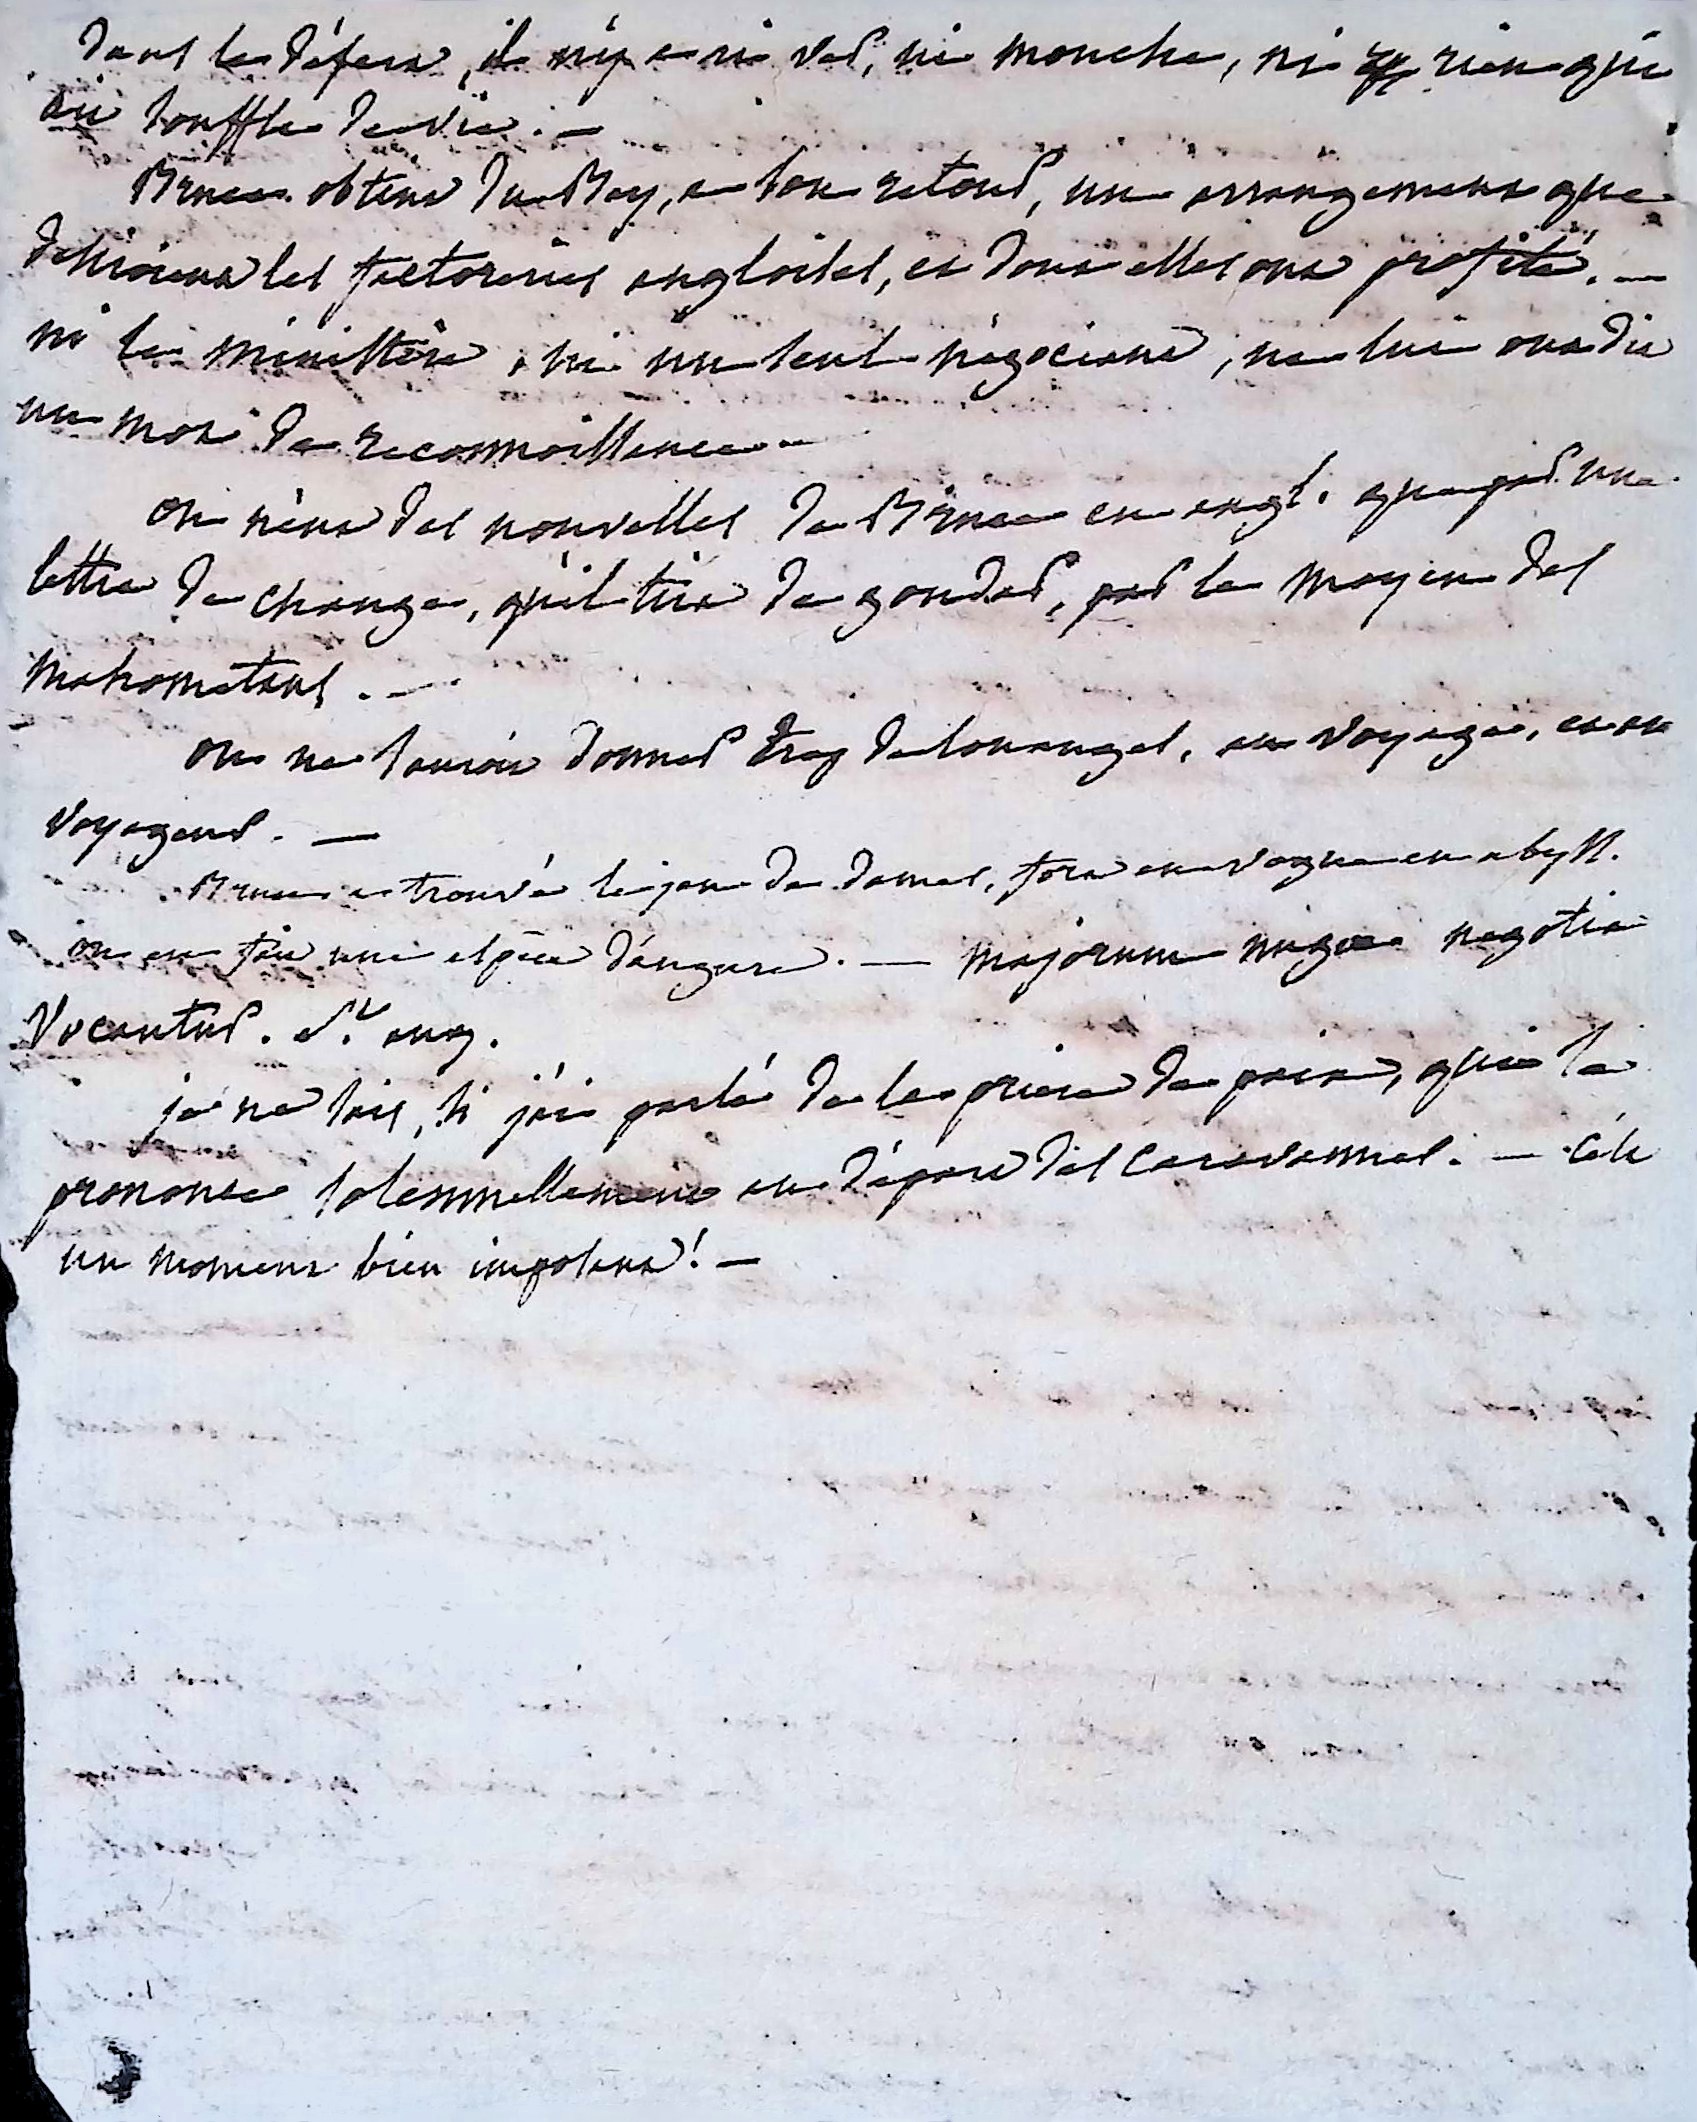 dans le désert, il n'y a ni ver, ni mouche, ni rien qui
ait souffle de vie. —
Bruce obtint du Bey, a son retour, un arrangement que
desiroient les factoreries angloises, et dont elles ont profité. —
ni le ministère, ni un seul négociant, ne lui ont dit
un mot de reconnoissance —
on n'eut des nouvelles de Bruce en angl. que par une
lettre de change, qu'il tira de gondar, par le moyen des
mahometans. —
on ne sauroit donner trop de louanges, au voyage, et au
voyageur. —
Bruce a trouvé le jeu de dames, fort en vogue en abyss.
on en fait une espèce d'augure. — majorum nugae negotia
vocantur. St. aug.
je ne sais, si j'ai parlé de la priere de paix, qui se
prononce solemnellement au départ des caravannes. — c'est
un moment bien imposant! —